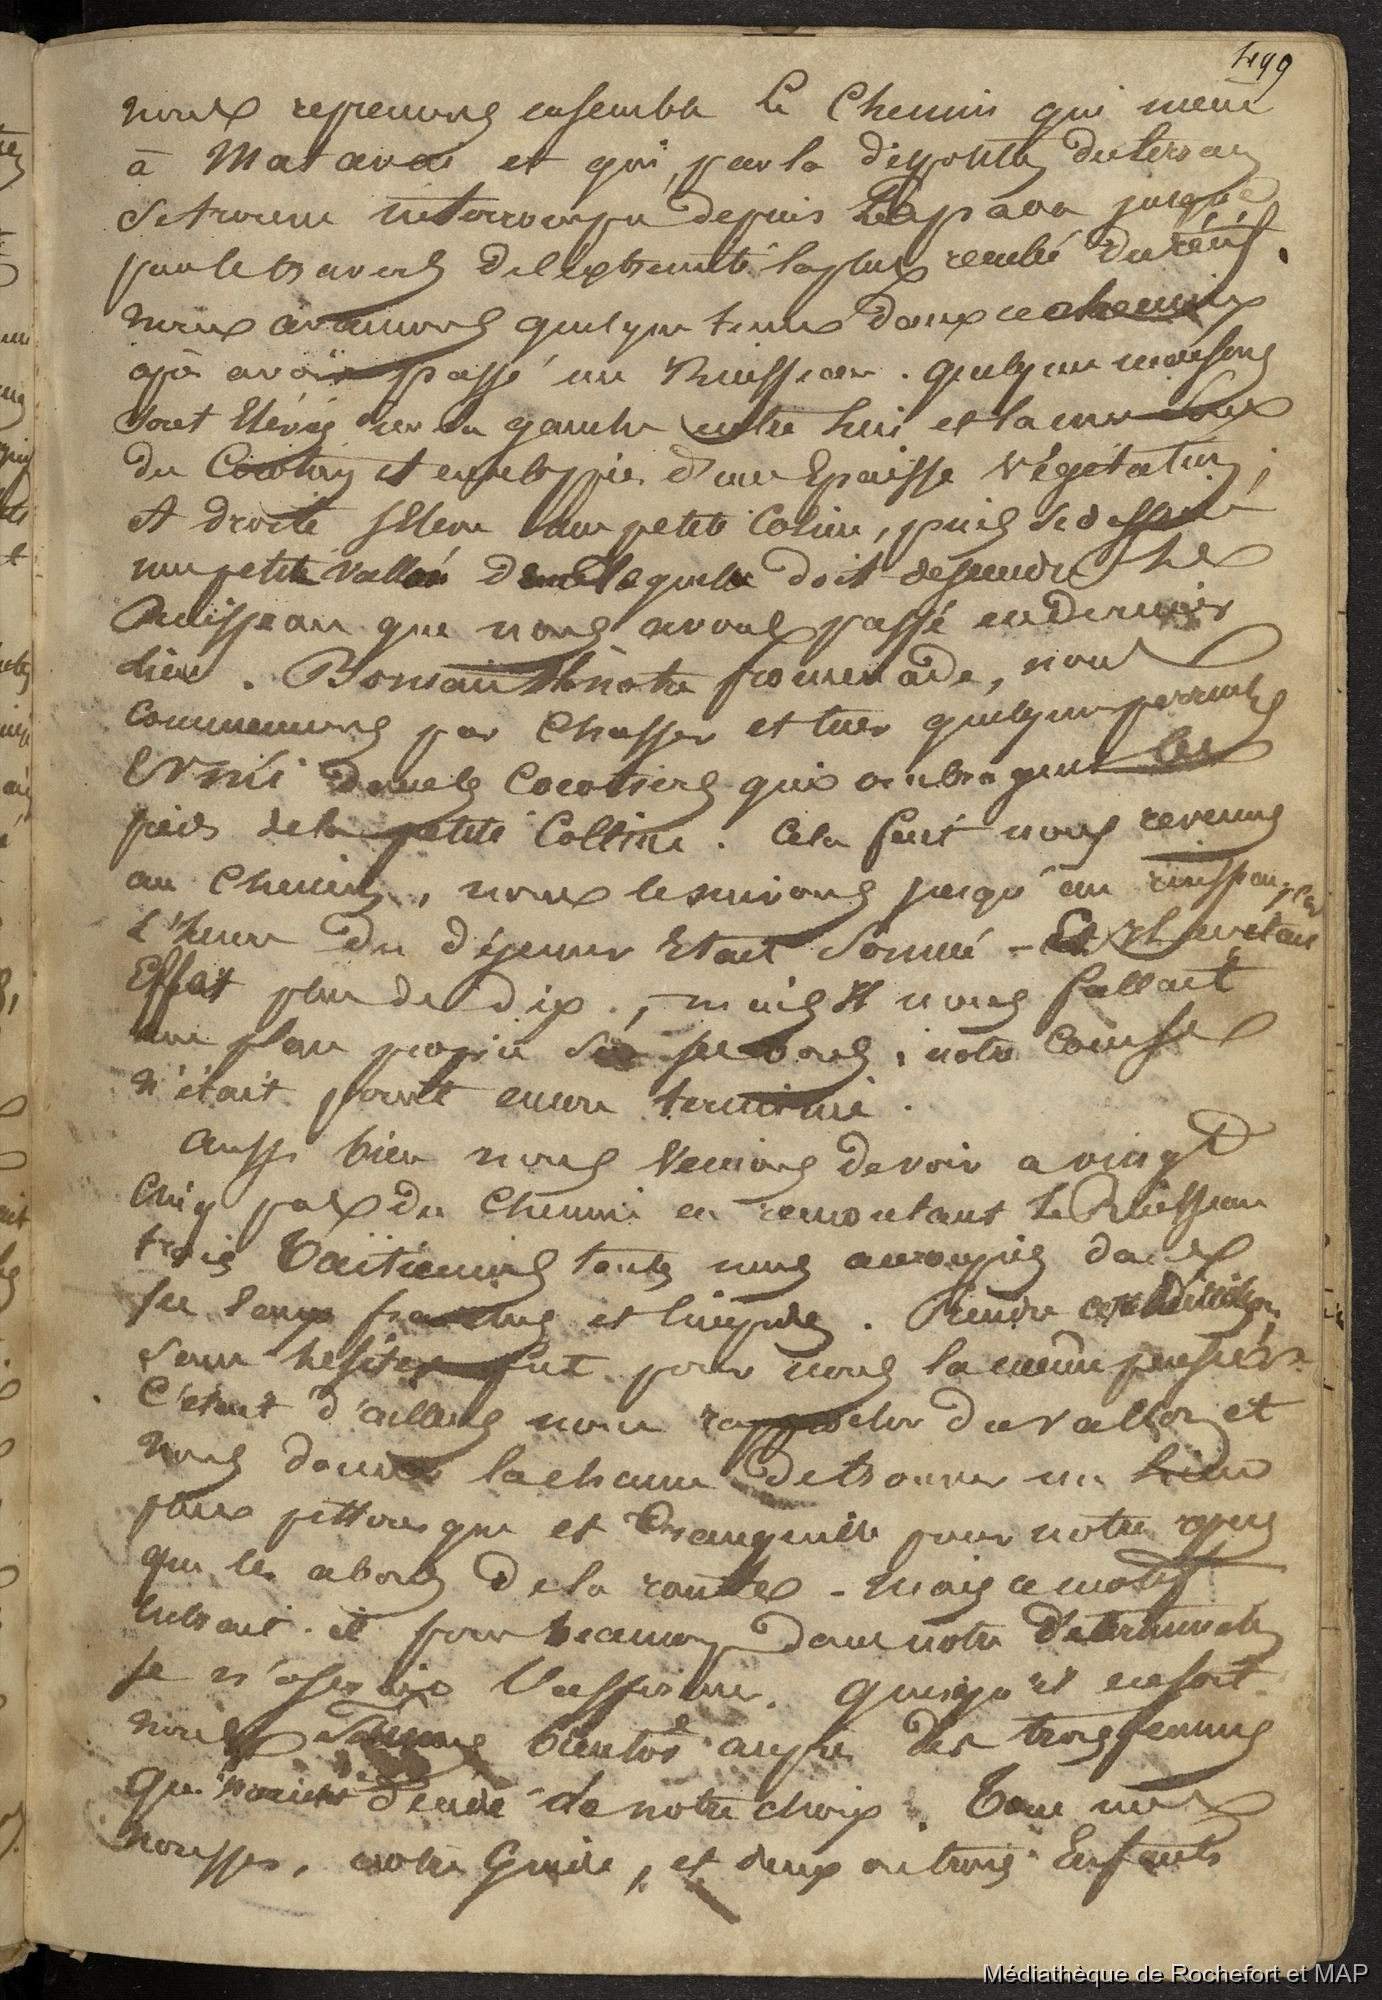 499
nous reprenons ensemble le Chemin qui mene
à Matavae et qui, par la disposition du terrain
se trouve interrompu depuis Papaoa jusque
par le travers de l'extremité la plus reculée du récif.
nous avancons quelque tems dans ce chemin
après avoir passé un Ruisseau. quelques maisons
sont Elevées sur sa gauche entre lui et la mer
du Cocotiers et enveloppées d'une Epaisse végétation;
A droite s'éleve une petite Coline, puis se dessine
une petite vallée dans laquelle doit descendre le
Ruisseau que nous avons passé en dernier
lieu. Bornant là notre promenade, nous
commencons par Chasser et tuer quelques perruches
Evini dans les Cocotiers qui ombragent les
pieds de la petite Colline. Cela fait nous revenons
au Chemin, nous le suivons jusqu'au ruisseau, car
l'heure du déjeuner Etait sonnée - Il en etait
Effet plus de dix, mais il nous fallait
une place propice sur ses bords, notre Course
n'était point encore terminée.
Aussi bien nous venions de voir a vingt
Cinq pas du Chemin en remontant le Ruisseau
trois Taïtiennes toutes nues accroupies dans
ses eaux fraiches et limpides. Prendre cette direction
sans hesiter fut pour nous la même pensée.
C'était d'ailleurs nous rapprocher du vallon et
nous donner la chance de trouver un lieu
plus pittoresque et tranquille pour notre repas
que les abords de la route - mais ce motif
entrait-il pour beaucoup dans notre determination
je n'oserais l'assurer. Quoiqu'il en soit
nous fumes bientôt auprès des trois femmes
de notre choix. Tous nos
mousses, notre Guide, et deux ou trois Enfants
Médiathèque de Rochefort et MAP